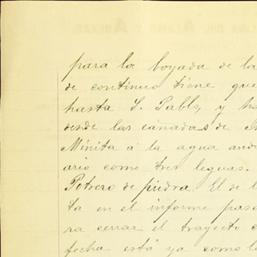 para la boyada de la
de continuo tiene que
hasta S. Pablo, y h
desde las cañadas de
Minita á la agua and
ario como tres leguas.
Potrero de piedra El de l
ta en el informe pas
ra cerrar el trayecto
fecha está ya como l